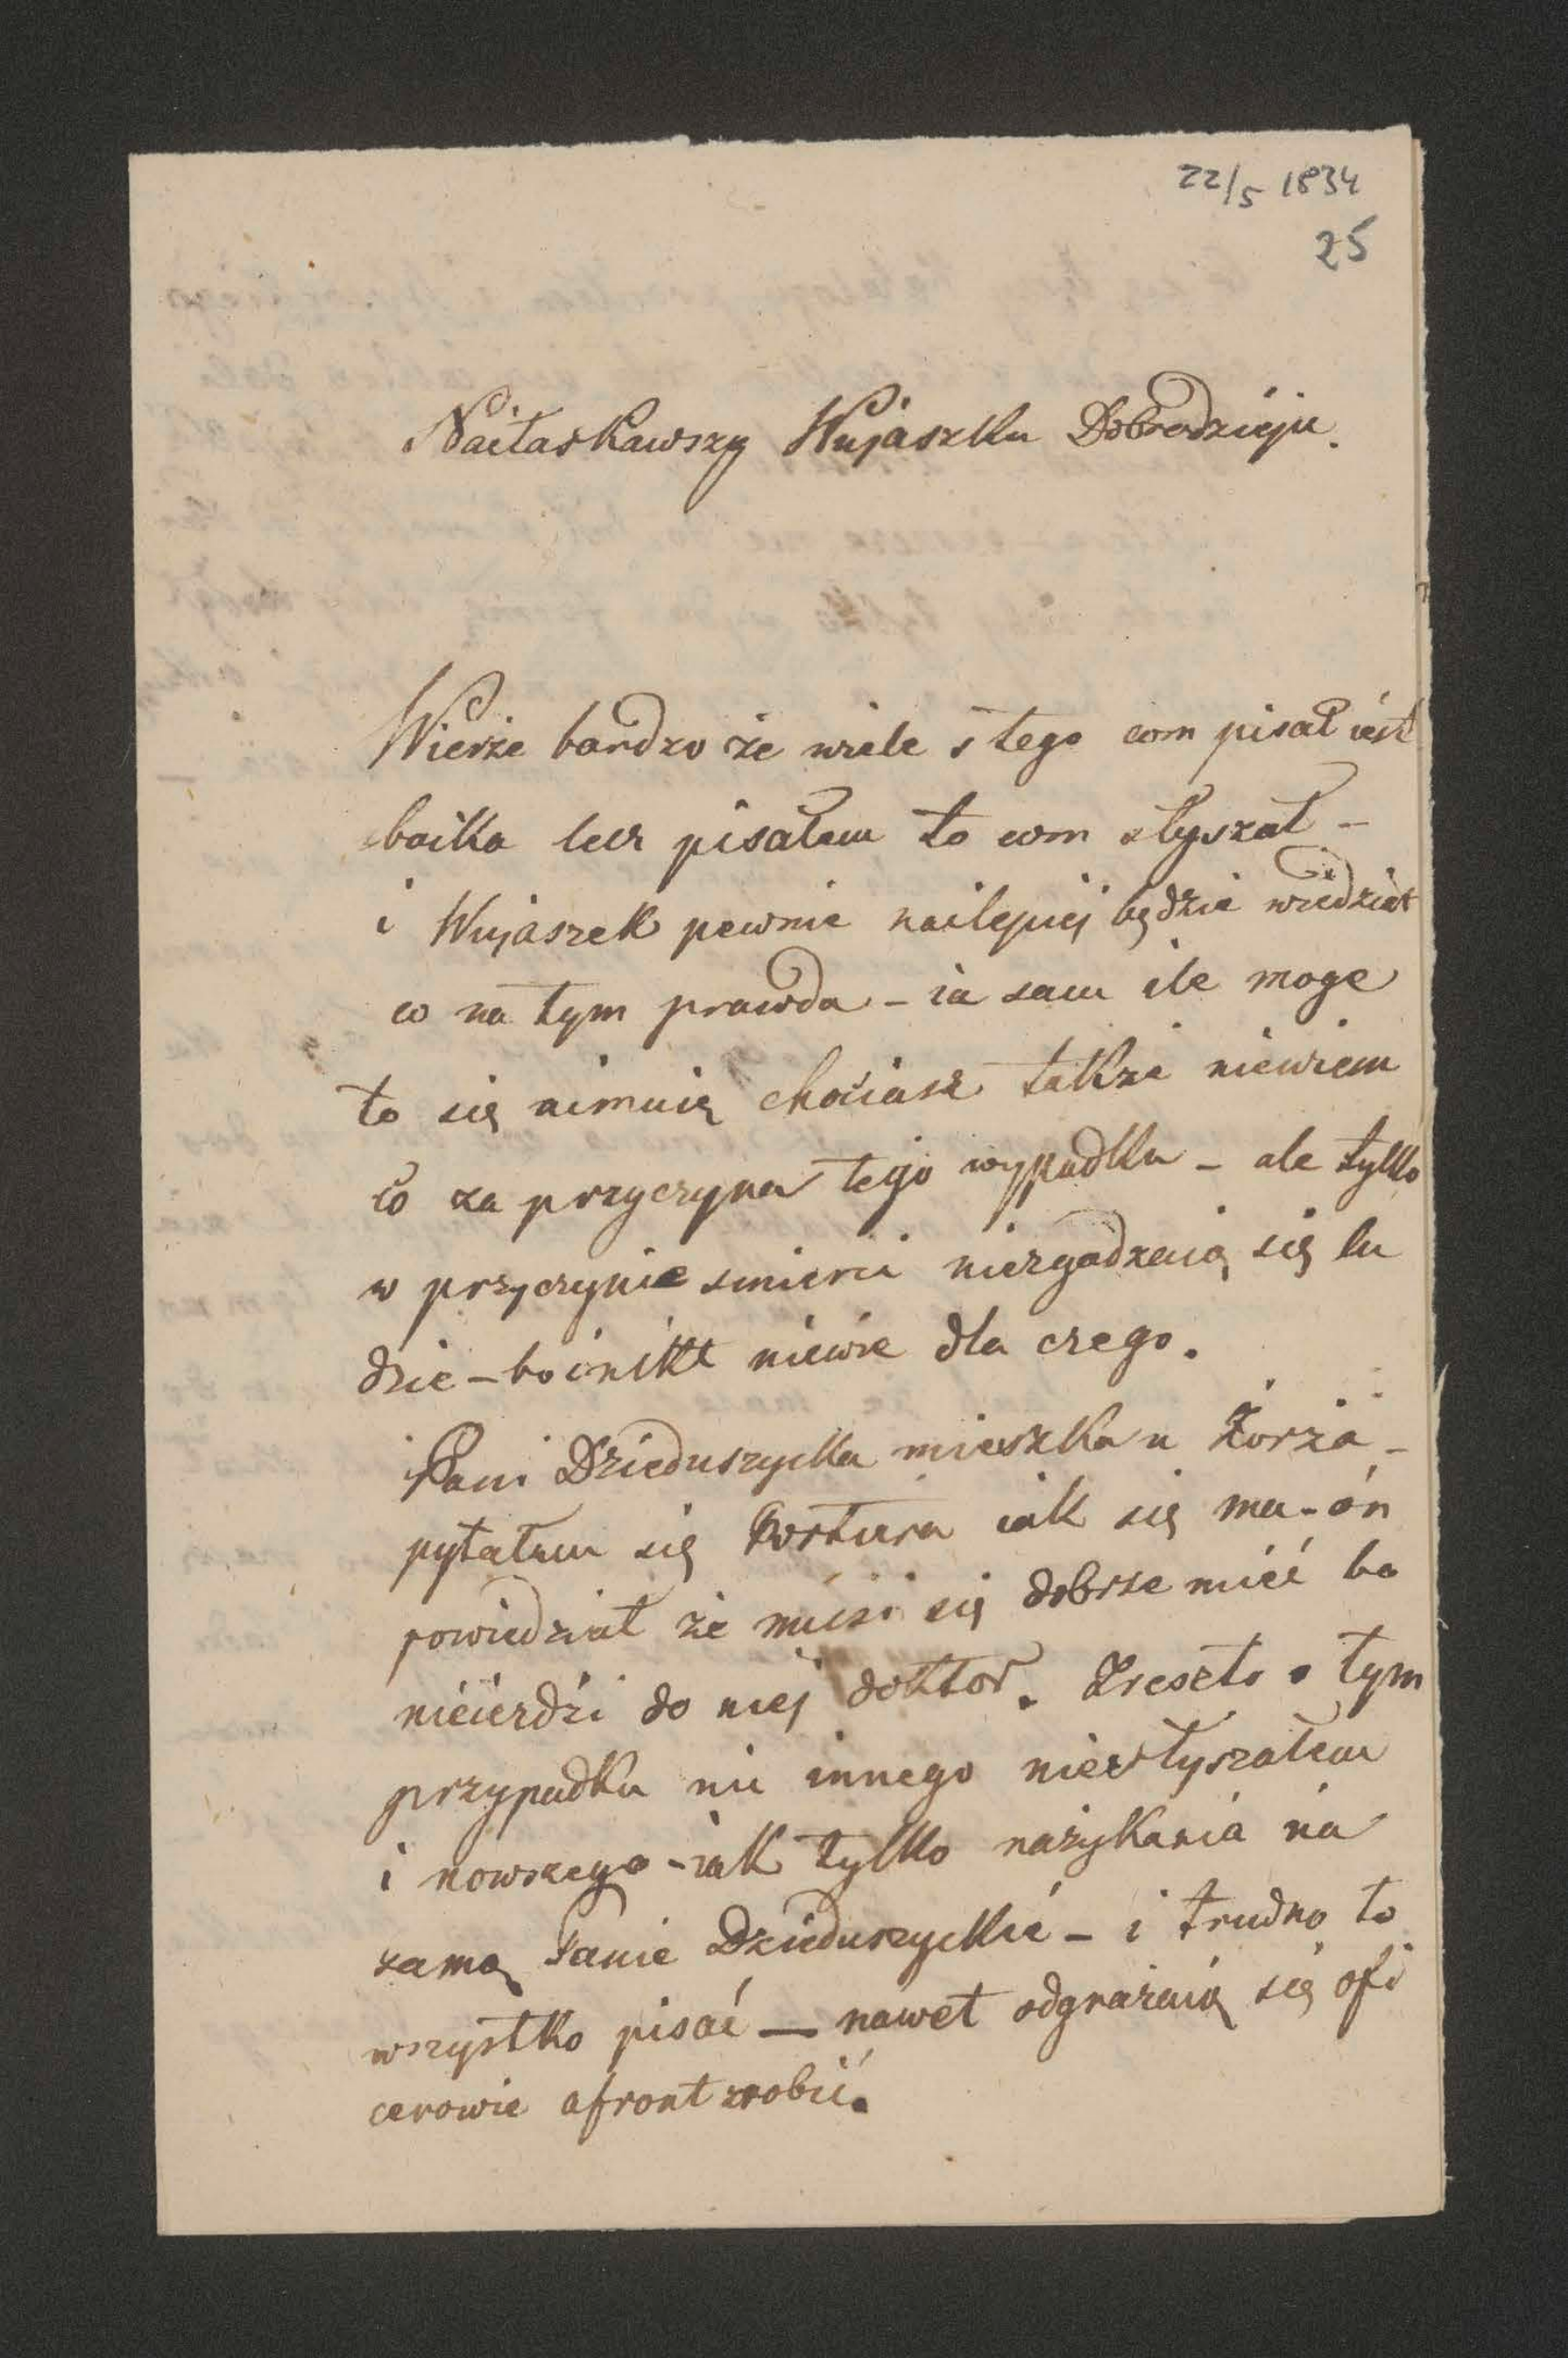 22/5 1834
25
Naiłaskawszy Wujaszku Dobrodzieju.
Wierże bardzo że wiele s tego com pisał iest
baika lecz pisałem to com słyszał –
i Wujaszek pewnie nailepiej będzie wiedział
co na tym prawda – ia sam ile moge
to się nimuią chociasz takze niewiem
co za przyczyna tego wypadku – ale tylko
w przyczynie smierci niezgadzaią się lu
dzie – bo i nikt niewie dla czego.
Pani Dzieduszycka mieszka u Żorża –
pytałem się Portiera iak się ma – on
powiedział że musi się dobrze mieć bo
nieiezdzi do niej doktor. Zreszto o tym
przypadku nic innego niesłyszałem
i nowszego – iak tylko nażykania na
samą Panie Dzieduszyckie – i trudno to
wszystko pisać — nawet odgrażaią się ofi
cerowie afront zrobić.